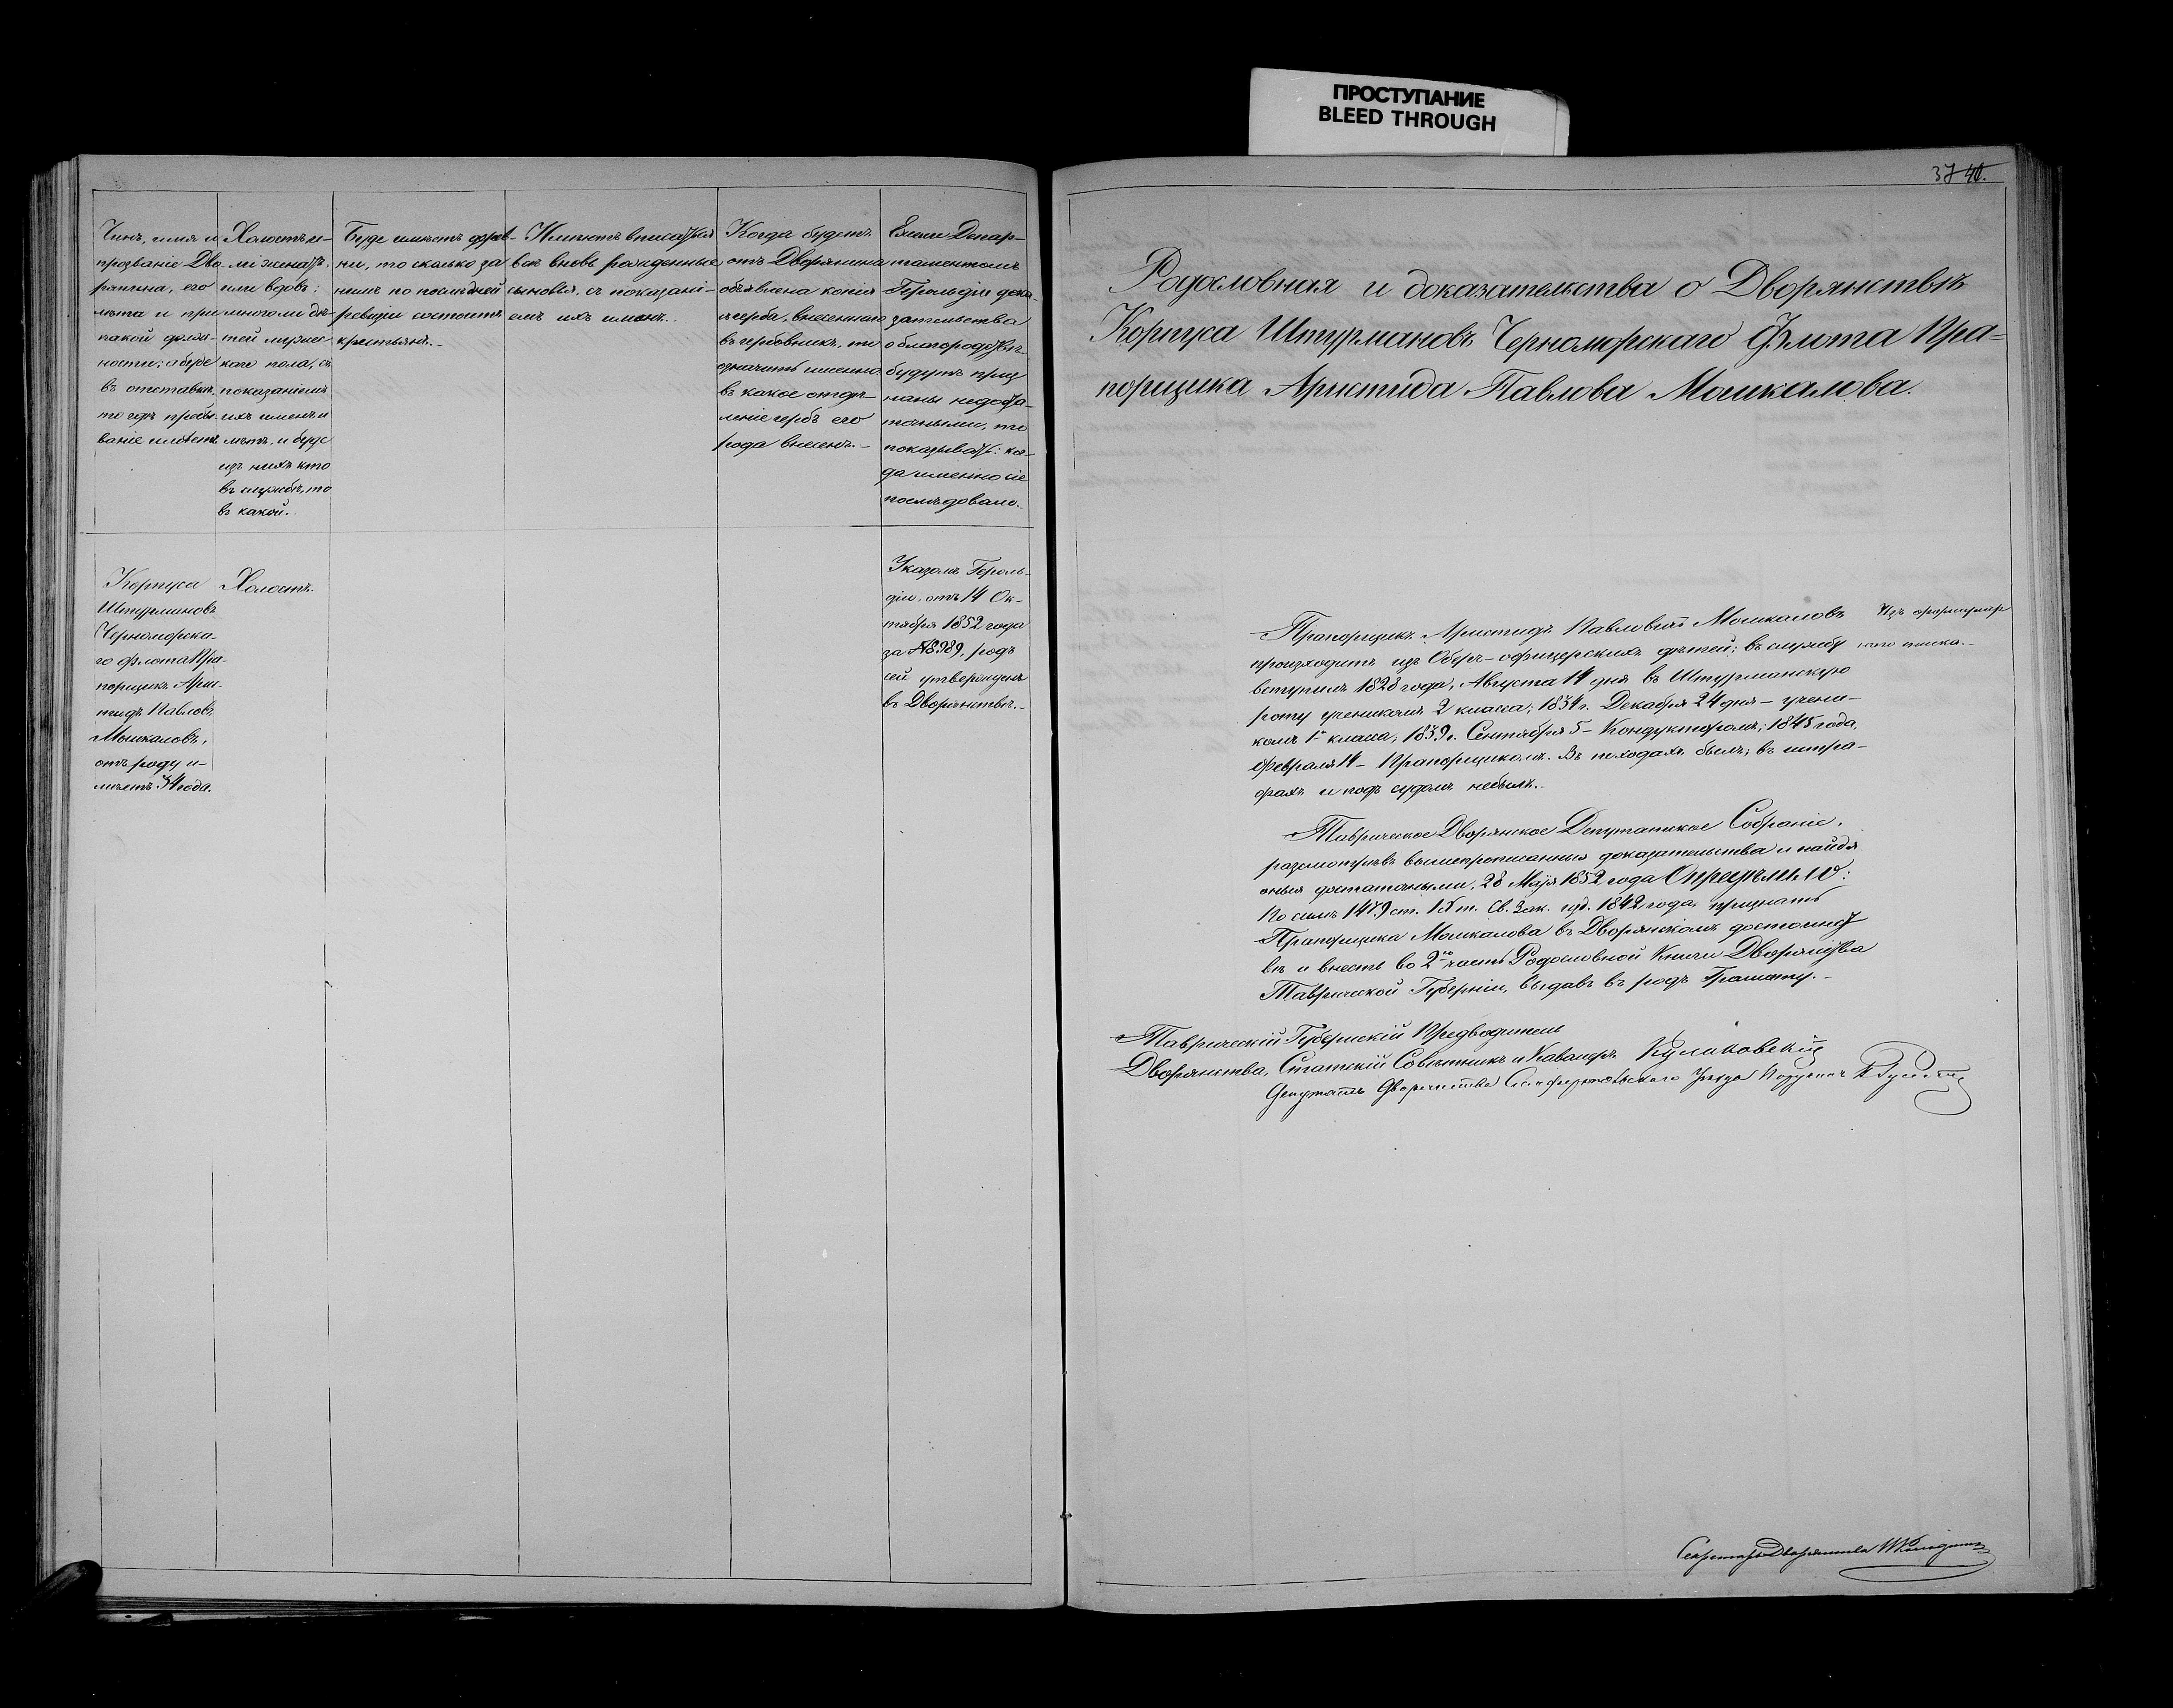 ПРОСТУПАНИЕ
BLEED THROUGH
Чинъ, имя и
прозваніе Дво-
рянина, его
лѣта и при
какой долж-
ности; а буде
въ отставкѣ,
то гдѣ пребы-
ваніе имѣетъ.
Холостъ и-
ли женатъ,
или вдовъ;
многоли дѣ-
тей мужес-
каго пола, съ
показаніемъ
ихъ именъ и
лѣтъ, и буде
изъ нихъ кто
въ службѣ, то
въ какой.
Буде имѣетъ дерев-
ни, то сколько за
нимъ по послѣдней
ревизіи состоитъ
крестьянъ.-
Имѣютъ вписаться
всѣ вновь рожденные
сыновья, съ показані-
емъ ихъ именъ.
Когда будетъ
отъ Дворянина
объявлена копія
съ герба, внесеннаго
въ гербовникъ, то
означить именно
въ какое отдѣ-
леніе гербъ его
рода внесенъ.-
Ежели Депар-
таментомъ
Герольдіи дока-
зательства
о благородствѣ
будутъ приз
наны недоста-
точными, то
показывать: ког-
да именно сіе
послѣдовало.
Корпуса
Штурмановъ
Черноморска-
го флота Пра-
порщикъ Арис-
тидъ Павловъ
Мошкаловъ,
отъ роду и-
мѣетъ 34 года.
Холостъ.
Указомъ Героль-
діи отъ 14 Ок-
тября 1852 года
за № 8989, родъ
сей утвержденъ
въ Дворянствѣ.-
37 40.
Родословная и доказательства о Дворянствѣ
Корпуса Штурмановъ Черноморскаго Флота Пра-
порщика Аристида Павлова Мошкалова.
Прапорщикъ Аристидъ Павловичъ Мошкаловъ
произходитъ изъ Оберъ-офицерскихъ дѣтей; въ службу
вступилъ 1828 года, Августа 14 дня въ Штурманскую
роту ученикомъ 2 класса; 1834 г. Декабря 24 дня - учени-
комъ 1го класса; 1839 г. Сентября 5 - Кондукторомъ; 1845 года,
Февраля 14 - Прапорщикомъ. Въ походахъ былъ; въ штра-
фахъ и подъ судомъ небылъ.-
Изъ формуляр
наго списка.-
Таврическое Дворянское Депутатское Собраніе,
разсмотрѣвъ вышепрописанныя доказательства и найдя
оныя достаточными, 28 Мая 1852 года Опредѣлило:
По силѣ 1479 ст. IX т. Св. Зак. изд. 1842 года, признать
Прапорщика Мошкалова въ Дворянскомъ достоинст
вѣ и внесть во 2ю часть Родословной Книги Дворянства
Таврической Губерніи, выдавъ въ родъ Грамоту.-
Таврическій Губернскій Предводитель
Дворянства, Статскій Совѣтникъ и Кавалеръ Куликовскій
Депутатъ Дворянства Симферопольскаго Уѣзда Поручикъ
Секретарь Дворянства